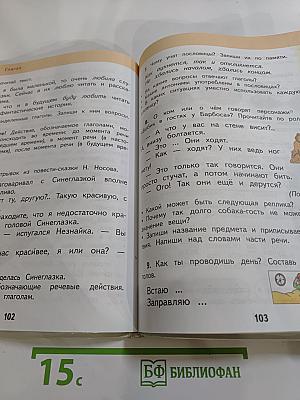 Глагол
очитай текст.
я была маленькой, то очень любила слу
азки. Сейчас я их люблю читать и расска-
что и в будущем буду любить читать
фантастические истории.
ыделенные глаголы. Запиши к ним вопросы,
ия! Действия, обозначенные глаголами, мо-
сходить во времени: до момента речи
шедшее время), в момент речи (настоящее
), после момента речи (в будущем вре-
отрывок из повести-сказки Н. Носова.
зговаривал с Синеглазкой вполне
жливо.
от ту, другую?.. Такую красивую, с
находите, что я недостаточно кра-
головой Синеглазка.
— испугался Незнайка. — Вы
рас красивее, я или она? —
делась Синеглазка.
обозначающие речевые действия.
глаголам.
102
Чему учат пословицы? Запиши их по памяти.
аукнется, так и откликнется.
удались началом, удались концом.
вопросы отвечают глаголы?
антонимы употреблены в пословицах?
8. О ком или о чём говорят персонажи?
в гостях у Барбоса? Прочитайте по ролям.
— А что у вас на стене висит?..
внизу болтается.
— Это... Они ходят.
— Как — ходят? У них ведь ног
нет!
— Это только так говорится. Они
просто стучат, а потом начинают бить.
— Ого! Так они ещё и дерутся?
Какой может быть следующая реплика?
Почему так долго собака-гость не может
значение вещи?
Запиши название предмета и приписывае
ствия. Напиши над словами части речи.
9. Как ты проводишь день? Составь
голов.
Встаю ...
Заправляю ...
103
15с
БФ БИБЛИОФАН